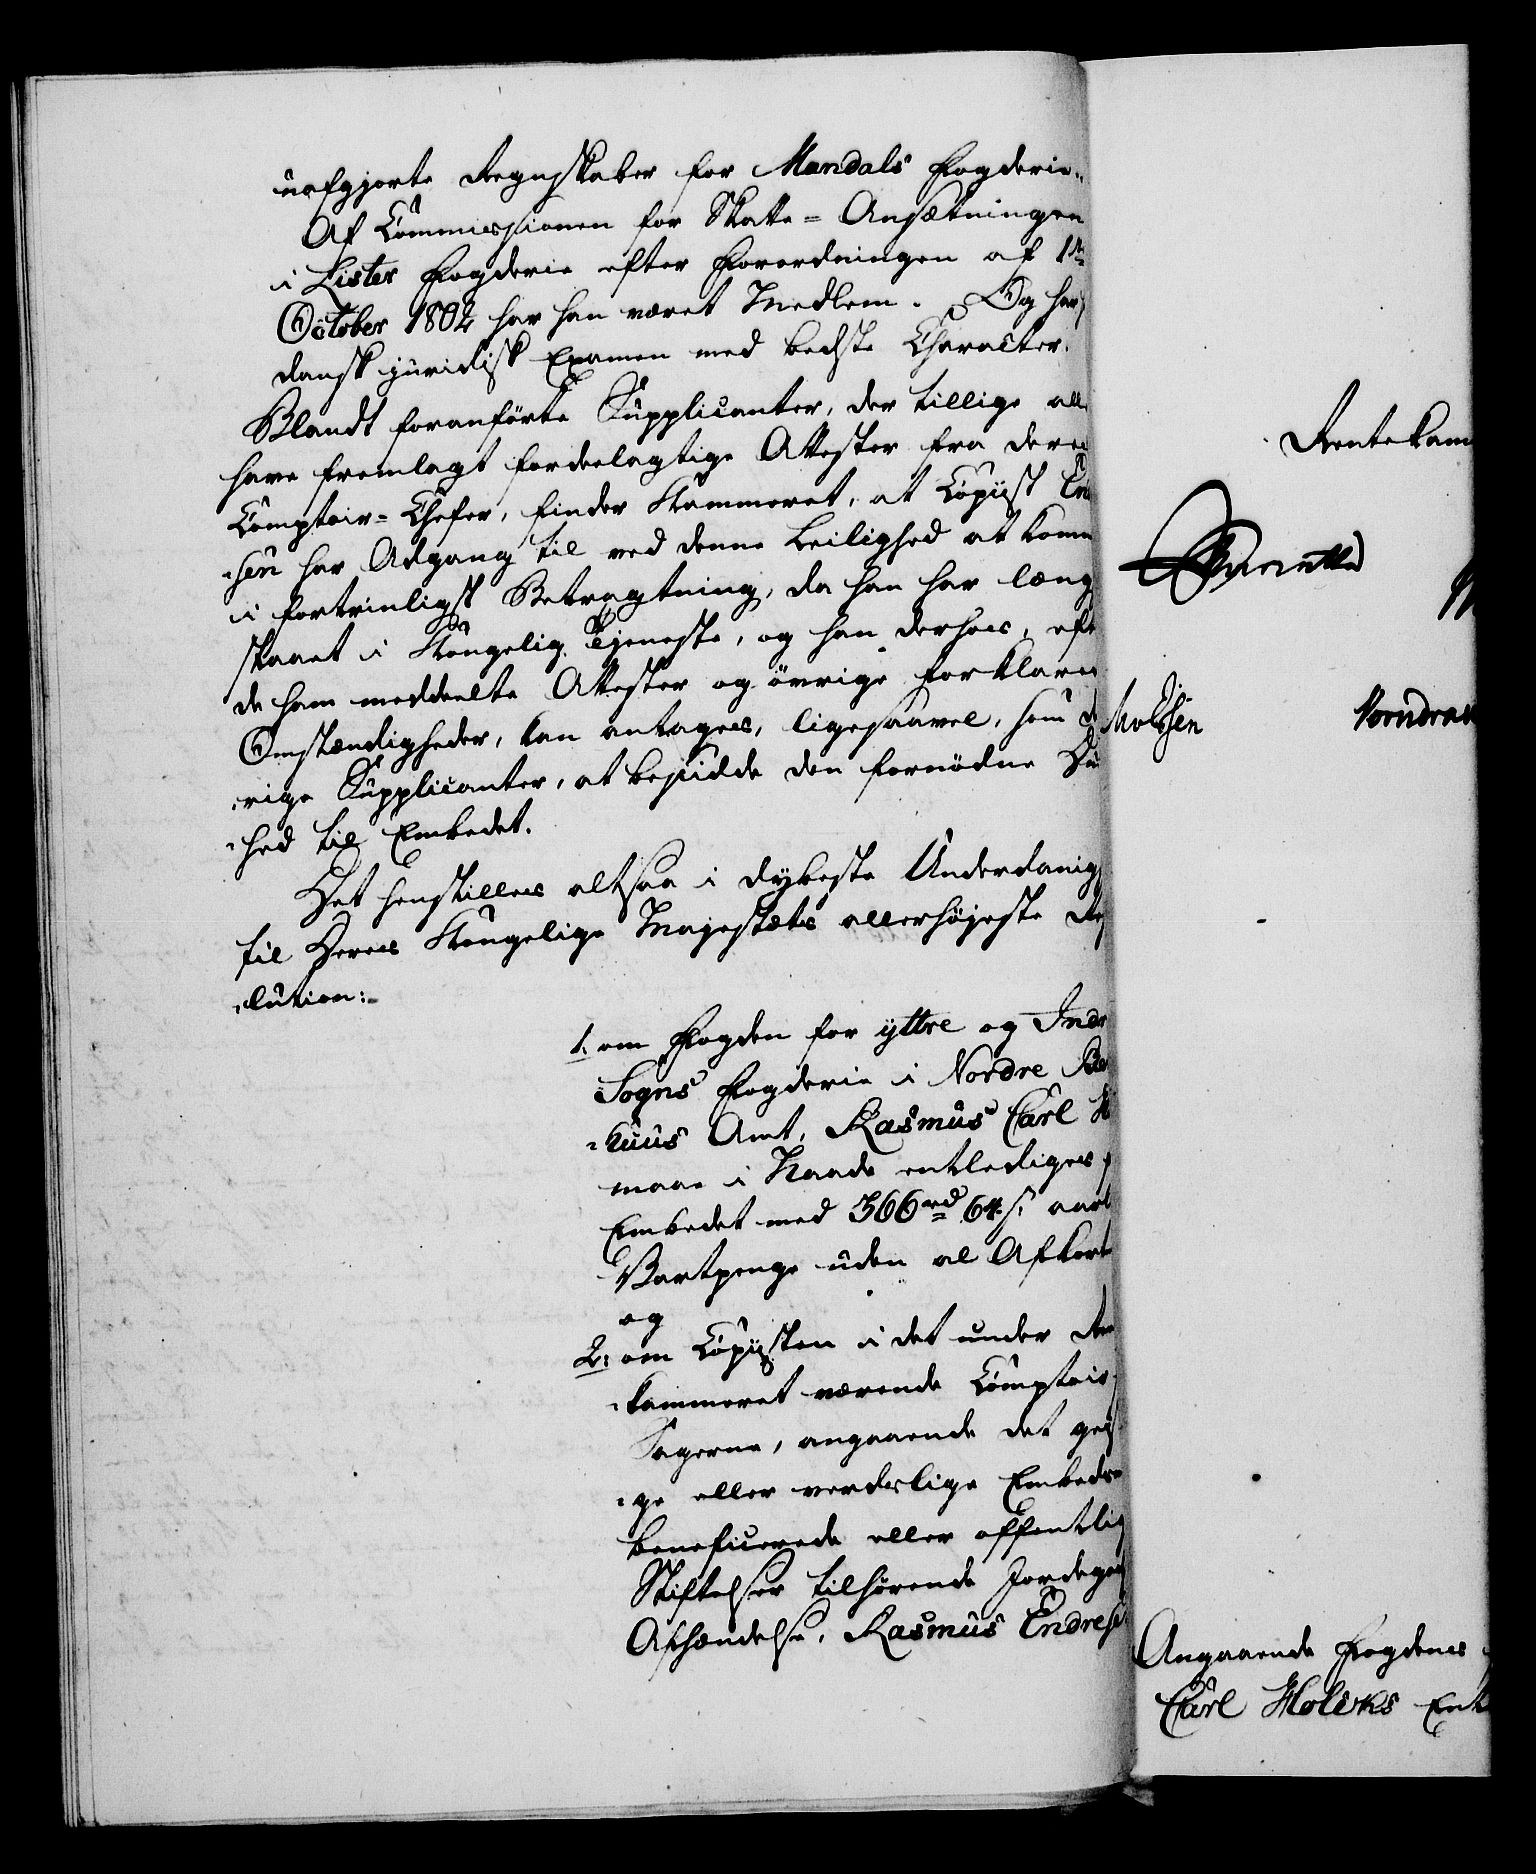 uafgjorte Regnskaber for Mandals Fogderie.
Af Commissionen for Skatte-Ansætningen
i Lister Fogderie efter Forordningen af 1ste
October 1802 har han været Medlem. Og har
dansk juridisk Examen med bedste Character.
Blandt foranførte Supplicanter, der tillige alle
have fremlagt fordeelagtige Attester fra deres
Comptoir-Chefer, finder Kammeret, at Copiist En
sen har Adgang til ved denne Leilighed at komm
i fortrinligst Betragtning, da han har læng
staaet i Kongelig Tjeneste, og han derhos, eft
de ham meddeelte Attester og øvrige forklare
Omstændigheder, kan antages, ligesaavel, som d
rige Supplicanter, at besidde den fornødne Du
hed til Embedet.
Det henstilles altsaa i dybeste Underdanig
til Deres Kongelige Majestæts allerhøjeste Res
lution:
1. om Fogden for ÿttre og Indr
Sogns Fogderie i Nordre Be
huus Amt, Rasmus Carl H
maae i Naade entlediges f
Embedet med 366 rd 64 s. aarl
Vartpenge uden al Afkort
og
2. om Copiisten i det under Ren
kammeret værende Comptoir f
Sagerne, angaaende det gei
ge eller verdslige Embeds
beneficerede eller offentlig
Stiftelser tilhørende Jordego
Afhændelse, Rasmus Endrese
Rentekam
Moltsen
Angaaende Fogdens
Carl Holcks Ent